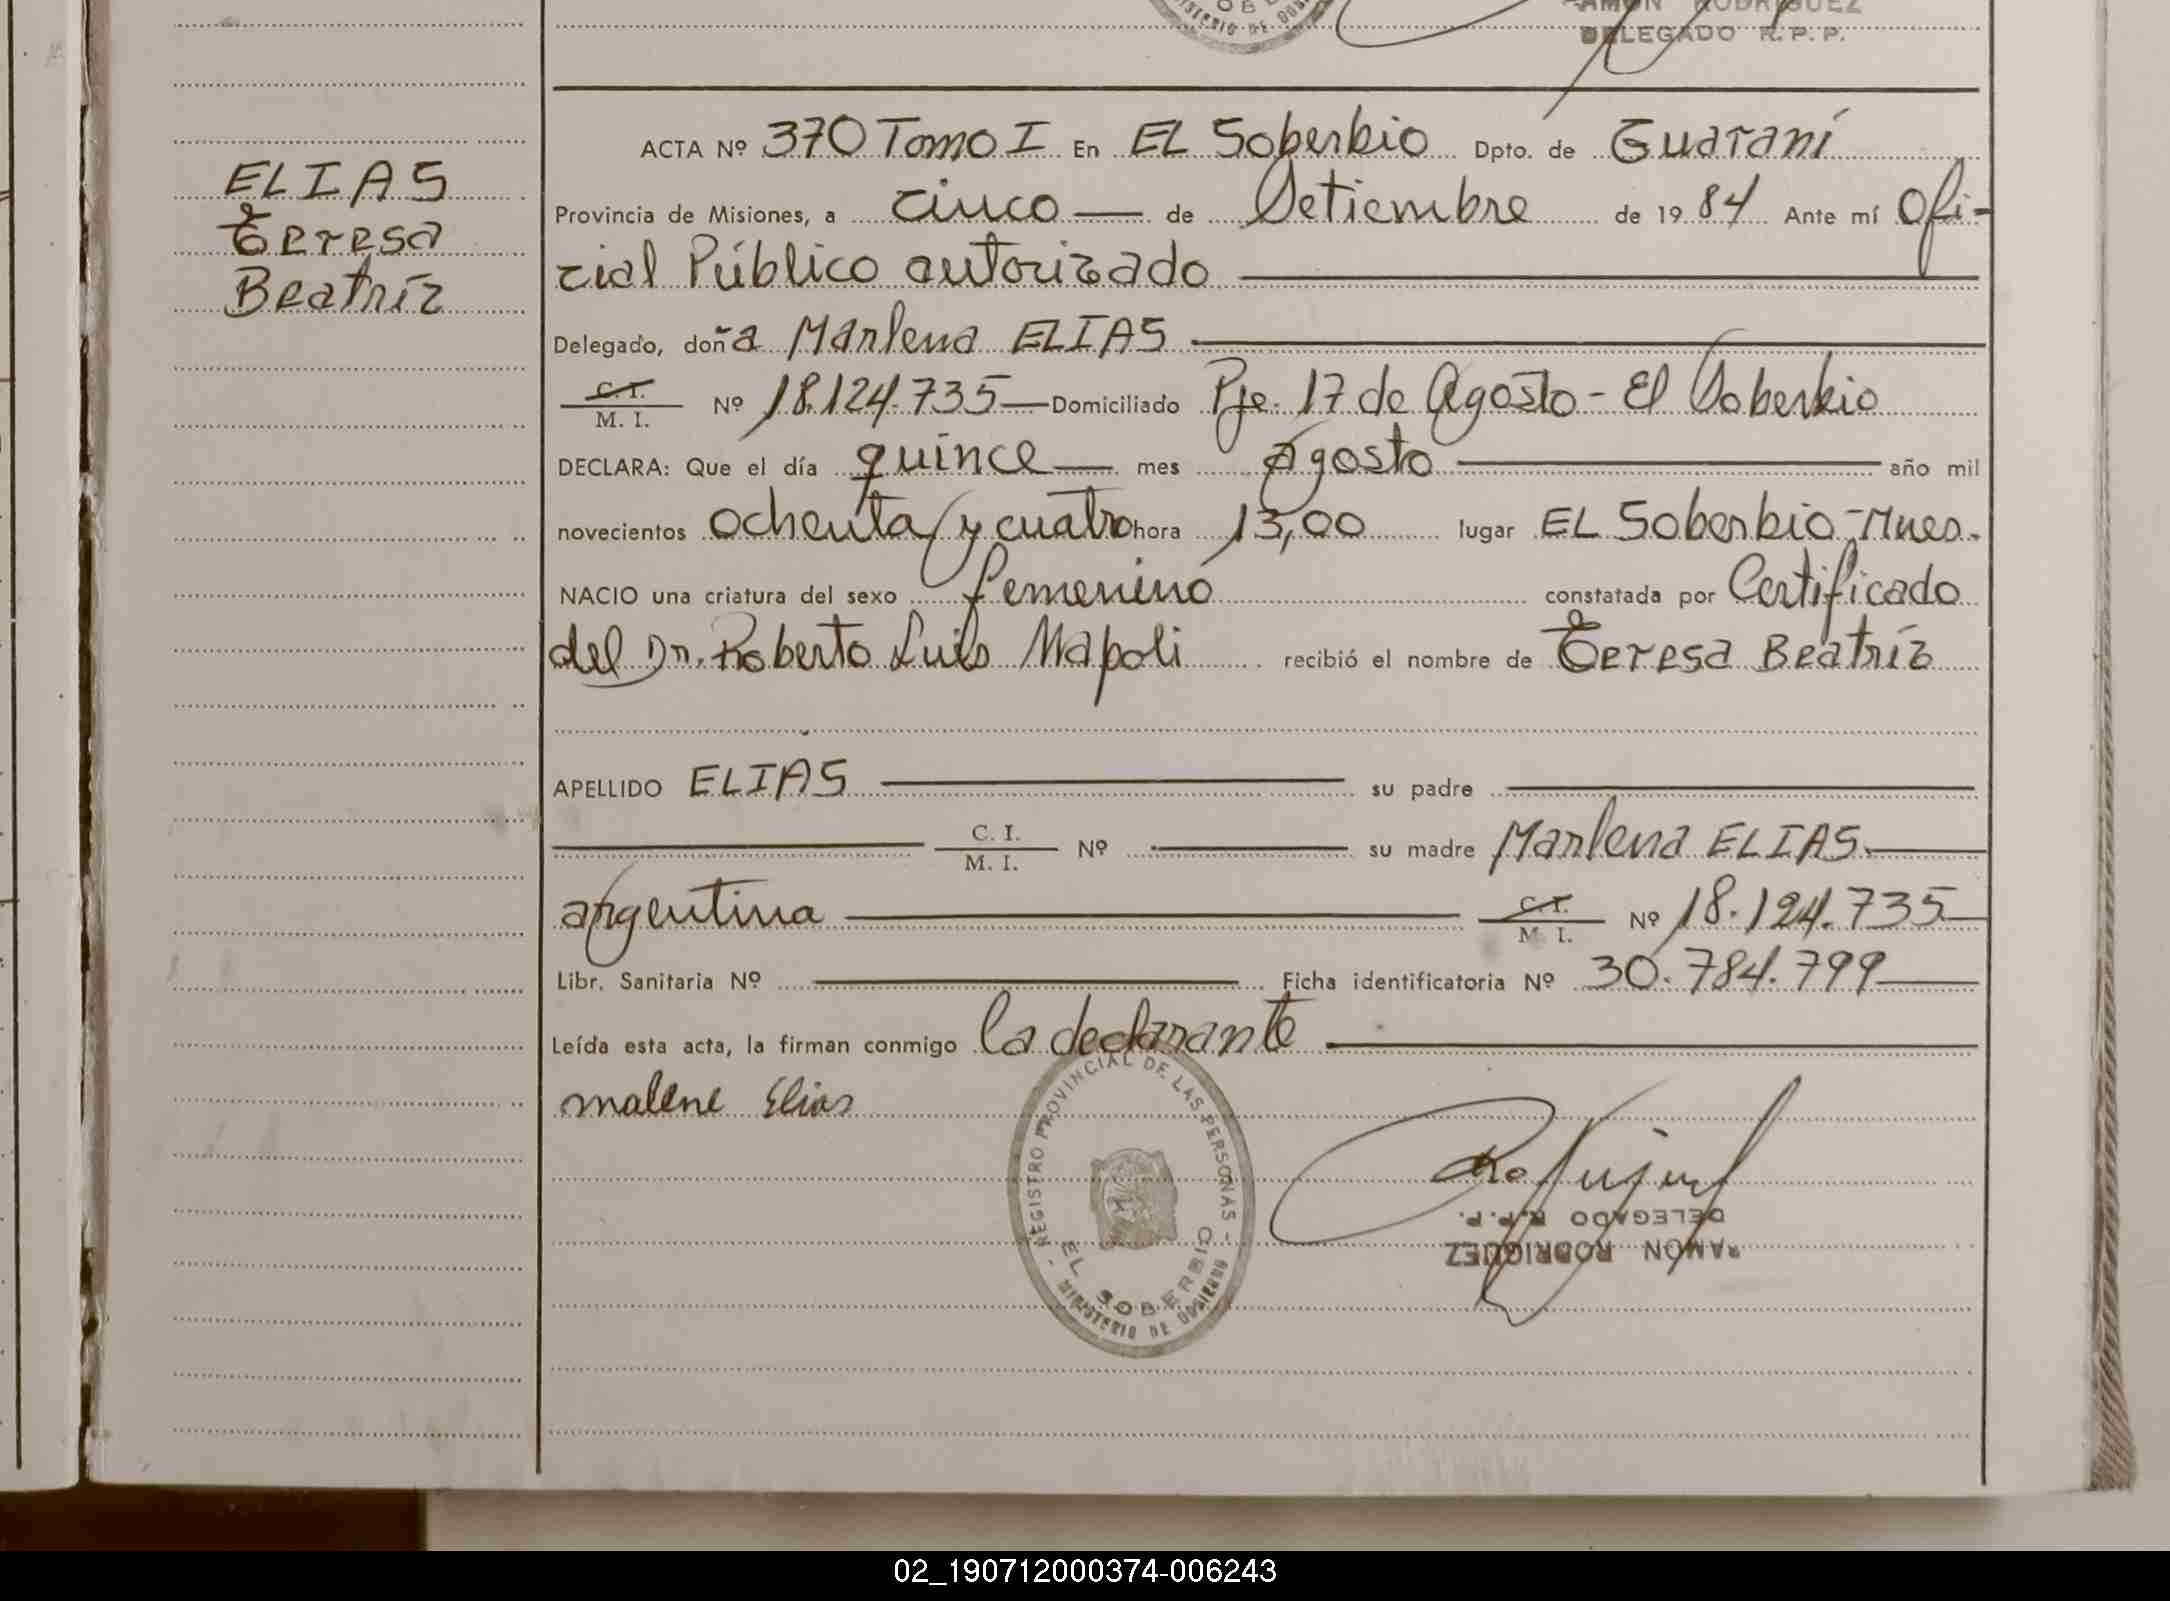 RAMÓN RODRIGUEZ
DELEGADO R.P.P.
ELIAS
Teresa
Beatríz
ACTA Nº 370 Tomo I En EL Soberbio Dpto. de Guaraní
Provincia de Misiones, a cinco — de Setiembre de 1984 Ante mí Ofi-
cial Público autorizado
Delegado, doña Marlena ELIAS
C. I.
M. I. Nº 18.124.735 — Domiciliado Pje. 17 de Agosto - El Soberbio
DECLARA: Que el día quince — mes agosto — año mil
novecientos ochenta y cuatro hora 13,00 lugar EL Soberbio - Mnes.
NACIO una criatura del sexo femenino constatada por Certificado
del Dr. Roberto Luis Napoli recibió el nombre de Teresa Beatríz
APELLIDO ELIAS — su padre —
C. I.
M. I. Nº — su madre Marlena ELIAS. —
argentina — C. I.
M. I. Nº 18.124.735 —
Libr. Sanitaria Nº — Ficha identificatoria Nº 30.784.799 —
Leída esta acta, la firman conmigo la declarante —
malene Elias
REGISTRO PROVINCIAL DE LAS PERSONAS -
EL SOBERBIO
- MINISTERIO DE GOBIERNO
RAMÓN RODRIGUEZ
DELEGADO R.P.P.
02_190712000374-006243